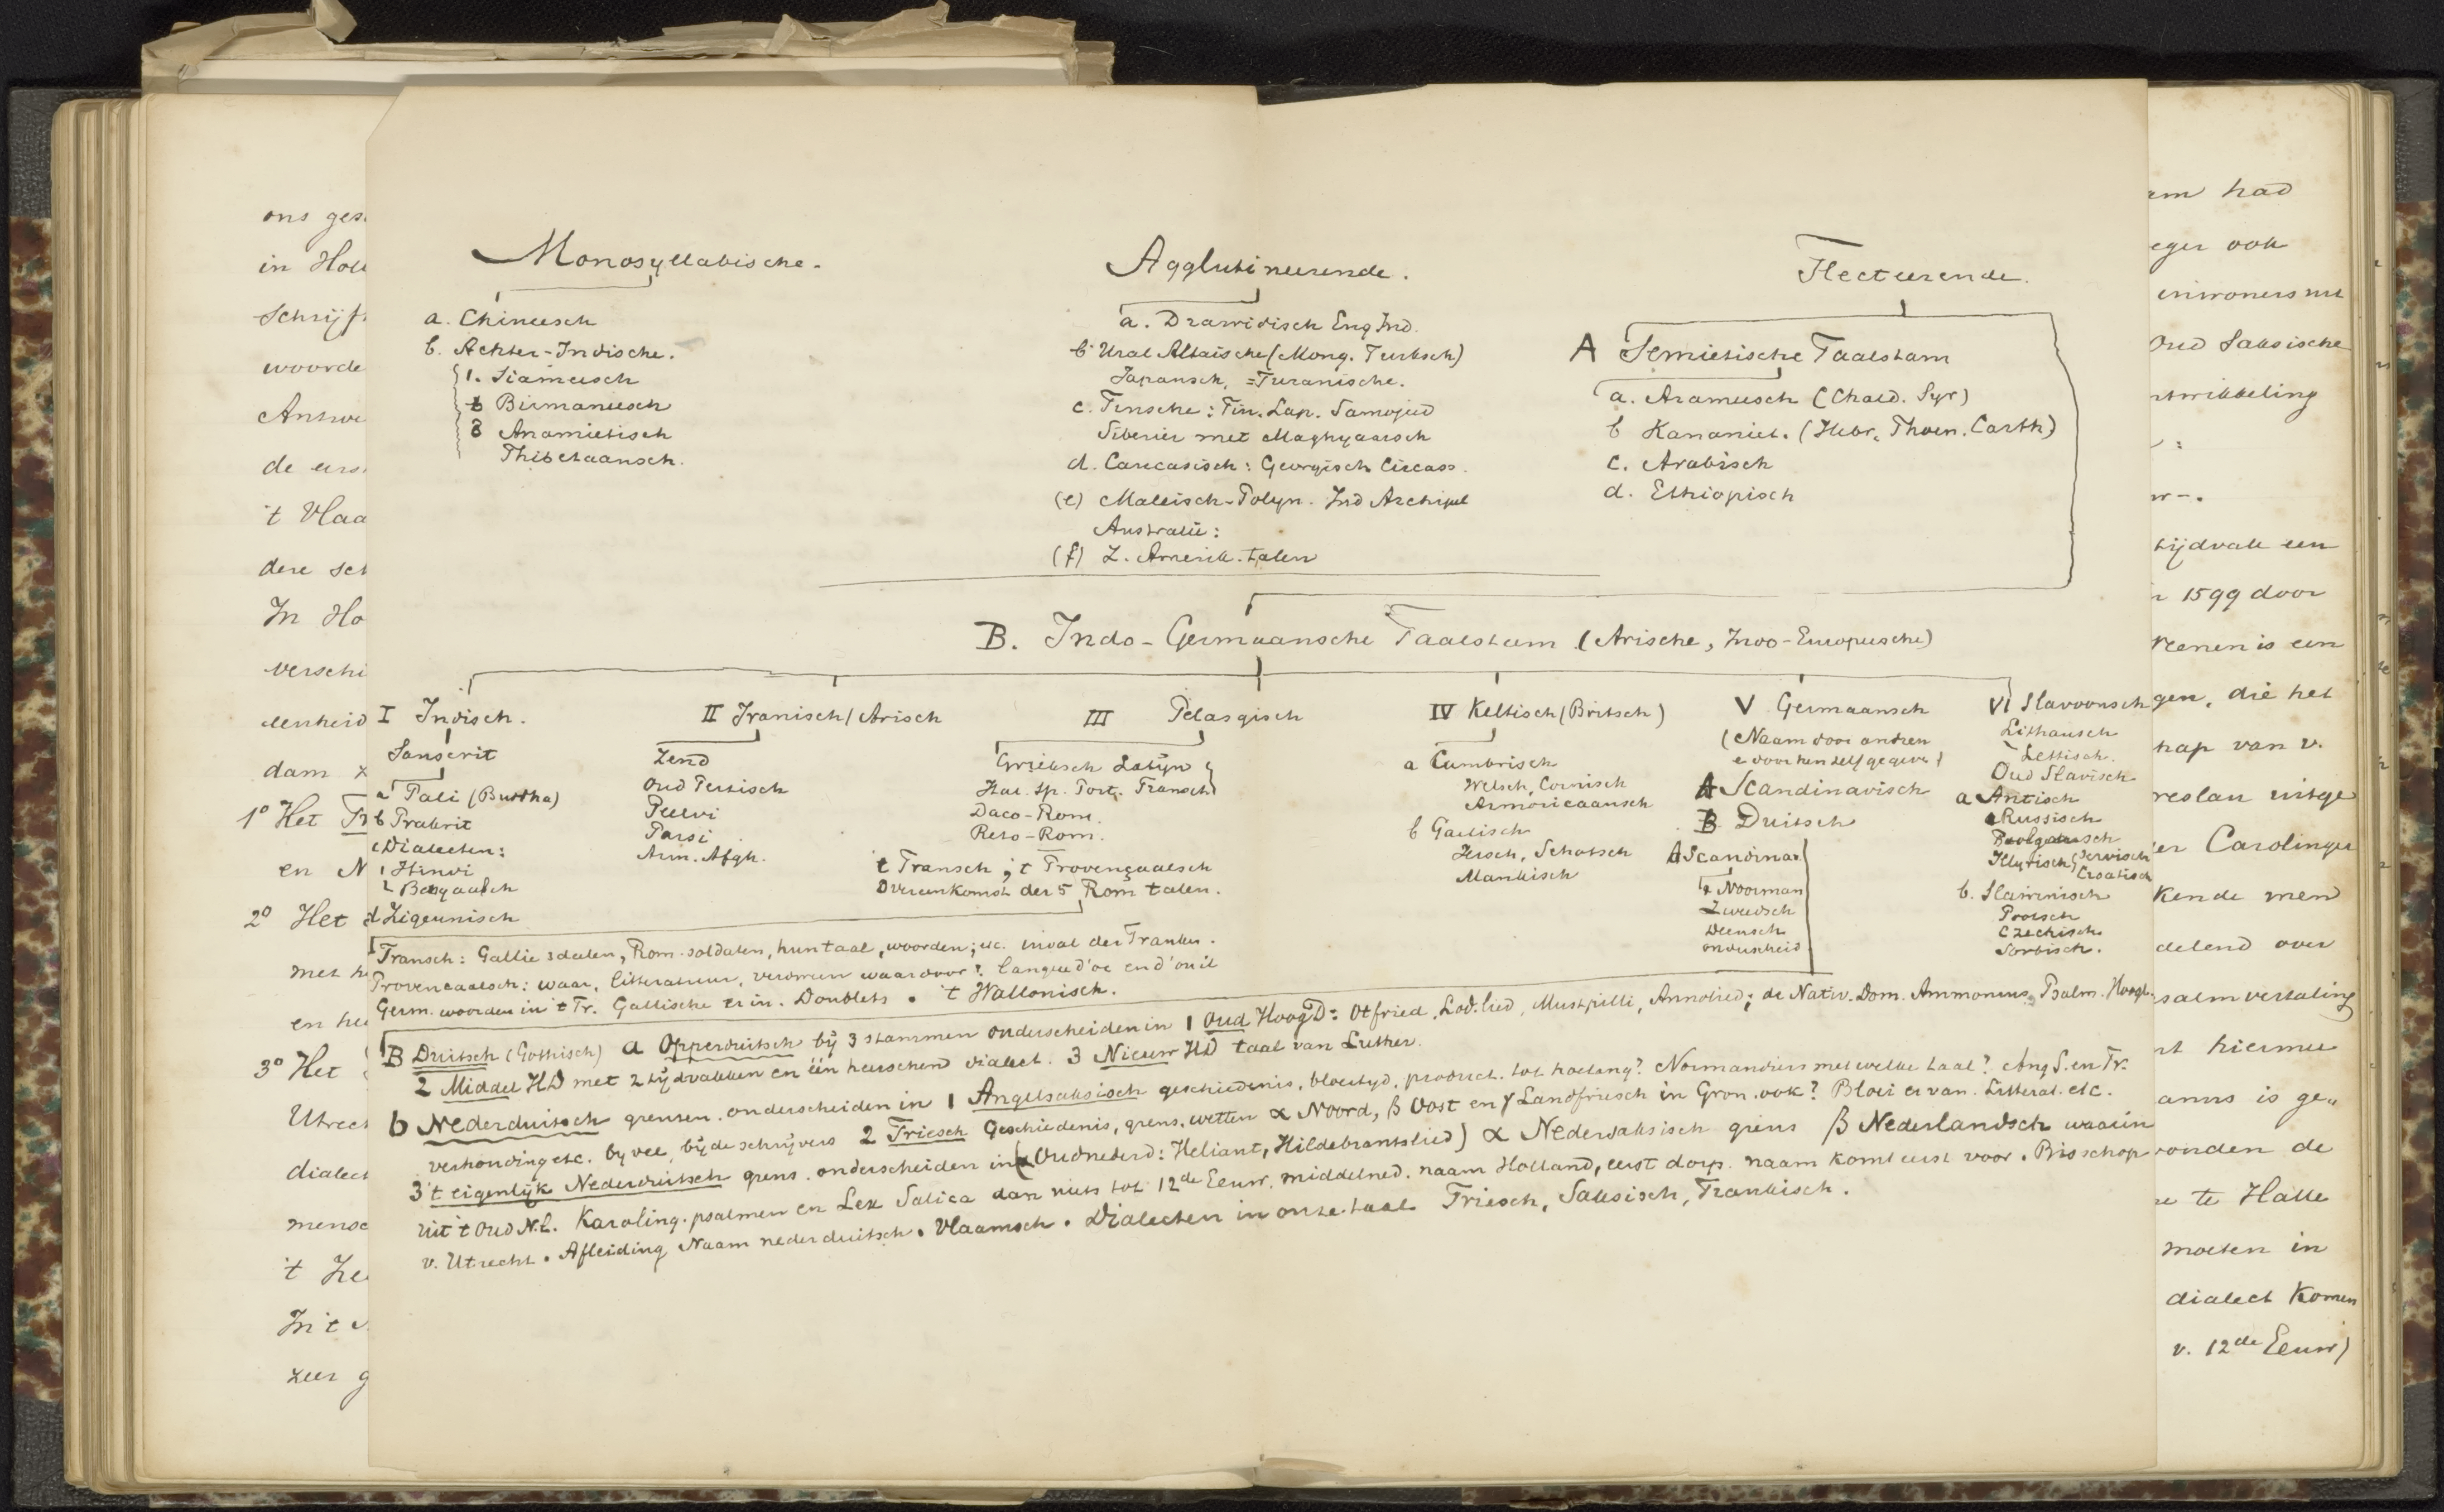 Monosyllabische.
a. Chineesch
b. Achter-Indische.
1. Siameesch
b Birmaneesch
3 Anamietisch
Thibetaansch.
Agglutineerende.
a. Drawidisch Eng Ind.
b Ural Altaische (Mong. Turksch)
Japansch, =Turanische.
c. Finsche: Fin. Lap. Samojeed
Siberier met Maghyaarsch
d. Caucasisch: Georgisch Circass.
(e) Maleisch-Polyn. Ind Archipel
Australië:
(f) Z. Amerik. talen
Flecteerende.
A Semietische Taalstam
a. Arameesch (Chald. Syr)
b Kananiet. (Hebr. Phoen. Carth)
c. Arabisch
d. Ethiopisch
B. Indo-Germaansche Taalstam (Arische, Indo-Europeesche)
I Indisch.
Sanscrit
a Pali (Buddha)
b Prakrit
c Dialecten:
1 Hindi
2 Bengaalsch
d Zigeunisch
II Iranisch/Arisch
Zend
Oud Persisch
Peelvi
Parsi
Arm. Afgh.
III Pelasgisch
Grieksch Latijn
Ital. Sp. Port. Fransch
Daco-Rom.
Reto-Rom.
't Fransch; 't Provençaalsch
Overeenkomst der 5 Rom talen.
IV Keltisch (Britsch)
a Cumbrisch
Welsch, Cornisch
Armoricaansch
b Gaelisch
Iersch, Schotsch
Mankisch
V Germaansch
(Naam door andren
e door hen zelf gegeven)
A Scandinavisch
B Duitsch
A Scandinav
Noorman
Zweedsch
Deensch
oudenheid
VI Slavoonsch
Lithausch
Lettisch.
Oud Slavisch
a Antisch
Russisch
Boolgaarsch
Illyrisch Servisch
Croatisch
b. Slawinisch
Poolsch
Czechisch
Sorbisch.
Fransch: Gallië 3 deelen, Rom. soldaten, hun taal, woorden; etc. inval der Franken.
Provencaalsch: waar, litteratuur, verdween waardoor? Langue d'oc en d'ouil
Germ. woorden in 't Fr. Gallische er in. Doublets. 't Wallonisch.
B Duitsch (Gothisch) a Opperduitsch bij 3 stammen onderscheiden in 1 Oud Hoog D: Otfried, Lod. lied, Muspilli, Annolied; de Nativ. Dom. Ammonius Psalm. Hoogl.
2 Middel HD met 2 tijdvakken en één heerschend dialect. 3 Nieuw HD taal van Luther.
b Nederduitsch grenzen. onderscheiden in 1 Angelsaksisch geschiedenis, bloeityd, product. tot hoelang? Normandiers met welke taal? Ang S. en Fr.
verhouding etc. by vee, bij de schrijvers 2 Friesch Geschiedenis, grens, wetten α Noord, β Oost en γ Landfriesch in Gron. ook? Bloei er van. Litterat. etc.
3 't eigenlijk Nederduitsch grens. onderscheiden in (Oudnederd: Heliant, Hildebrantslied) α Nedersaksisch grens β Nederlandsch waarin
uit 't Oud N.L. Karoling. psalmen en Lex Salica dan niets tot 12de Eeuw. middelned. naam Holland, eerst dorp. naam komt eerst voor. Bisschop
v. Utrecht. Afleiding Naam nederduitsch. Vlaamsch. Dialecten in onze taal Friesch, Saksisch, Frankisch.
in Hol
schrijf
woorde
't Vlaa
In Ho
verschi
dam
1° Het Fr
en N
2° Het
3° Het
Utrect
dialect
zeer g
had
eger ook
inwoners
Oud Saksische
ntwikkeling
tijdvak een
1599 door
eenen is een
gen, die het
hap van v.
reslau uitge
er Carolinger
Kende men
delend over
salmvertaling
hiermee
anus is ge
vonden de
te Halle
moeten in
dialect Komen
v. 12de Eeuw)